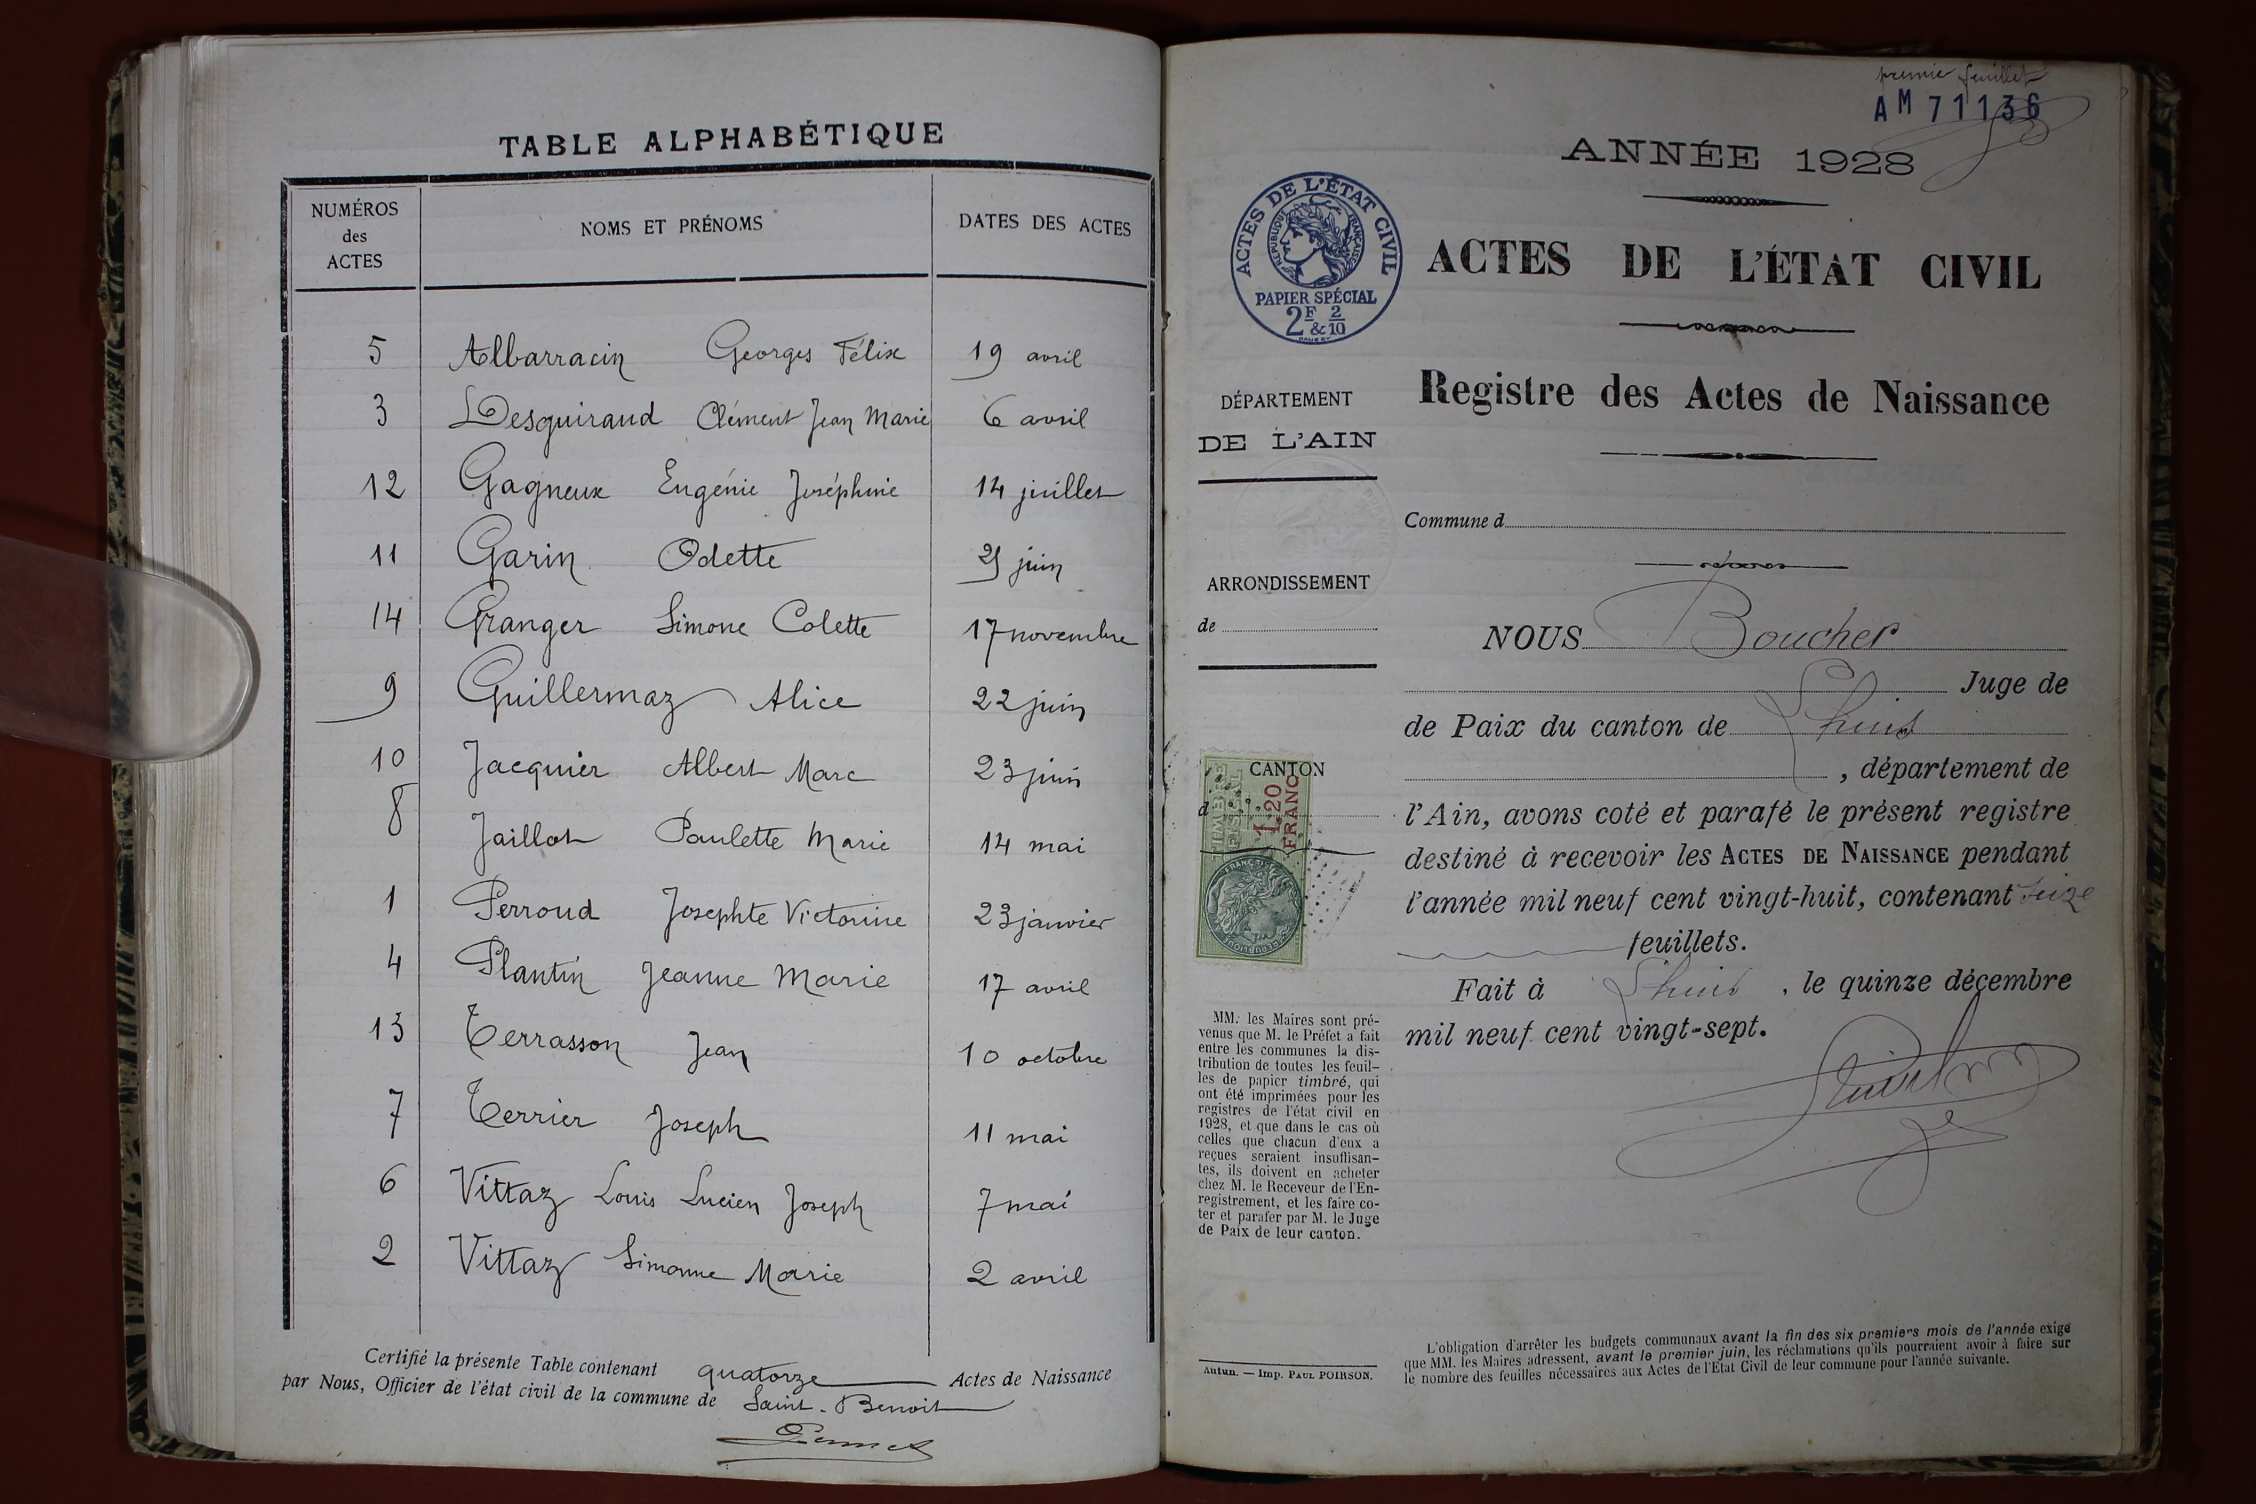 TABLE ALPHABÉTIQUE
NUMÉROS des ACTES NOMS ET PRÉNOMS DATES DES ACTES
5 Albarracin Georges Félix 19 avril
3 Desguiraud Clément Jean Marie 6 avril
12 Gagneux Eugénie Joséphine 14 juillet
11 Garin Odette juin
14 Granger Simone Colette 17 novembre
9 Guillermaz Alice 22 juin
10 Jacquier Albert Marc 23 juin
8 Jaillot Paulette Marie 14 mai
1 Perroud Josephte Victorine 23 janvier
4 Plantin Jeanne Marie 17 avril
13 Terrasson Jean 10 octobre
7 Terrier Joseph 11 mai
6 Vittaz Louis Lucien Joseph 7 mai
2 Vittaz Simonne Marie 2 avril
Certifié la présente Table contenant quatorze Actes de Naissance
par Nous, Officier de l'état civil de la commune de Saint-Benoit
premier feuillet
AM 71136
ANNÉE 1928
ACTES DE L'ÉTAT CIVIL
RÉPUBLIQUE FRANÇAISE
PAPIER SPÉCIAL
2F & 2/10
ACTES DE L'ÉTAT CIVIL
Registre des Actes de Naissance
DÉPARTEMENT
DE L'AIN
Commune d
ARRONDISSEMENT
de
CANTON
d
TIMBRE FISCAL
1.20
FRANC
NOUS Boucher
Juge de
de Paix du canton de Lhuis
, département de
l'Ain, avons coté et parafé le présent registre
destiné à recevoir les ACTES DE NAISSANCE pendant
l'année mil neuf cent vingt-huit, contenant seize
feuillets.
Fait à Lhuis, le quinze décembre
mil neuf cent vingt-sept.
MM. les Maires sont pré-
venus que M. le Préfet a fait
entre les communes la dis-
tribution de toutes les feuil-
les de papier timbré, qui
ont été imprimées pour les
registres de l'état civil en
1928, et que dans le cas où
celles que chacun d'eux a
reçues seraient insuffisan-
tes, ils doivent en acheter
chez M. le Receveur de l'En-
registrement, et les faire co-
ter et parafer par M. le Juge
de Paix de leur canton.
Autun. — Imp. PAUL POIRSON.
L'obligation d'arrêter les budgets communaux avant la fin des six premiers mois de l'année exige
que MM. les Maires adressent, avant le premier juin, les réclamations qu'ils pourraient avoir à faire sur
le nombre des feuilles nécessaires aux Actes de l'Etat Civil de leur commune pour l'année suivante.